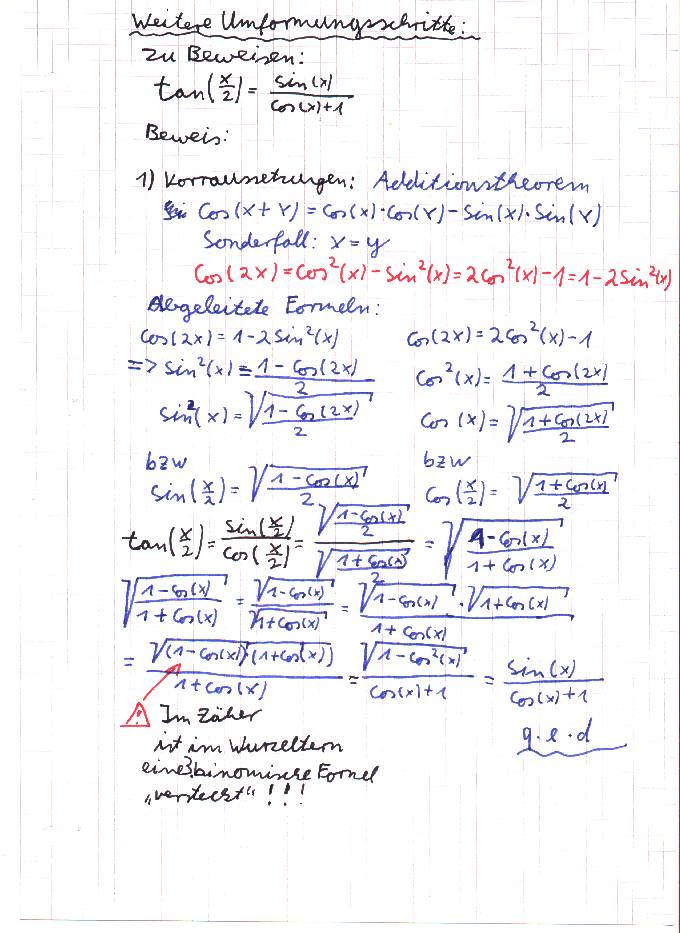 Weitere Umformungsschritte:
zu Beweisen:
tan(x/2) = sin(x)/(cos(x)+1)
Beweis:
1) Vorraussetzungen: Additionstheorem
Cos(x+Y) = Cos(x)·Cos(Y) - Sin(x)·Sin(Y)
Sonderfall: x = y
Cos(2x) = Cos²(x) - Sin²(x) = 2Cos²(x) - 1 = 1 - 2Sin²(x)
Abgeleitete Formeln:
Cos(2x) = 1 - 2Sin²(x) Cos(2x) = 2Cos²(x) - 1
=> Sin²(x) = (1 - Cos(2x))/2 Cos²(x) = (1 + Cos(2x))/2
Sin²(x) = √((1 - Cos(2x))/2) Cos(x) = √((1 + Cos(2x))/2)
bzw bzw
Sin(x/2) = √((1 - Cos(x))/2) Cos(x/2) = √((1 + Cos(x))/2)
tan(x/2) = sin(x/2)/cos(x/2) = √((1-Cos(x))/2)/√((1+Cos(x))/2) = √((1-Cos(x))/(1+Cos(x)))
√((1-Cos(x))/(1+Cos(x))) = √(1-Cos(x))/√(1+Cos(x)) = (√(1-Cos(x)) · √(1+Cos(x)))/(1+Cos(x))
= √((1-Cos(x))·(1+Cos(x)))/(1+Cos(x)) = √(1-Cos²(x))/(Cos(x)+1) = Sin(x)/(Cos(x)+1)
! Im Zäher
ist im Wurzeltern
eine 3. binomische Formel
„versteckt“!!!
q.e.d